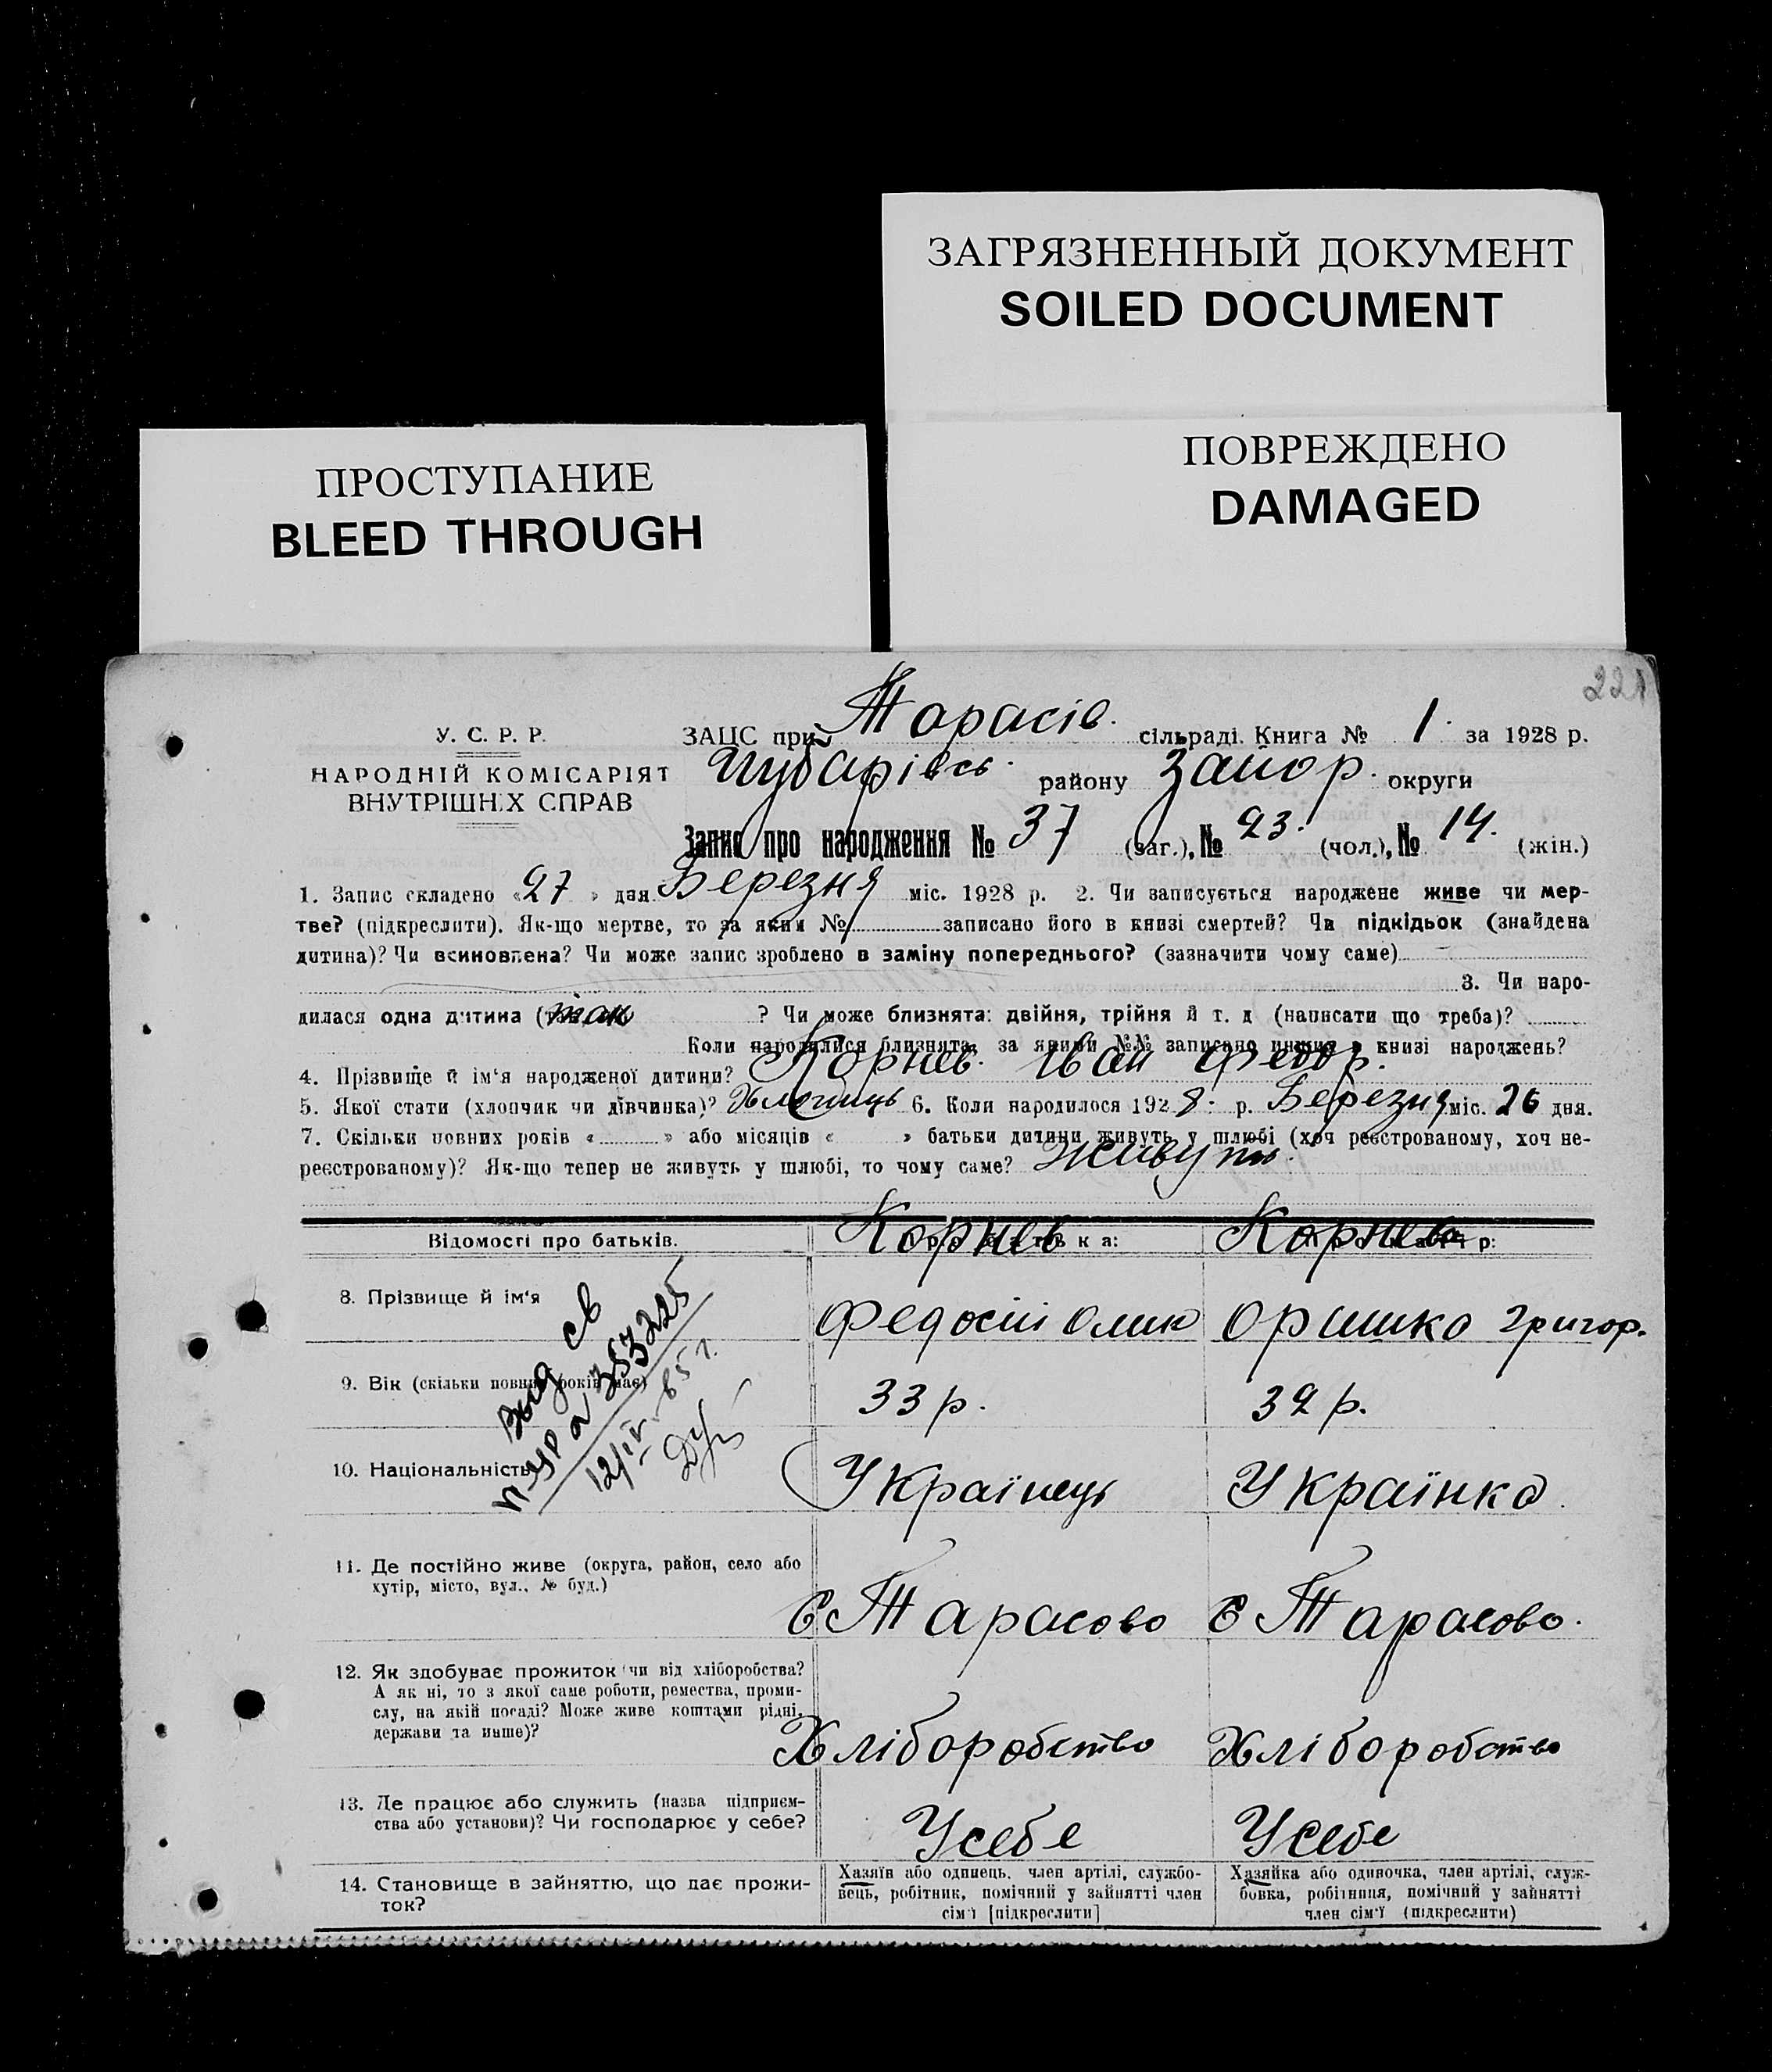 ЗАГРЯЗНЕННЫЙ ДОКУМЕНТ
SOILED DOCUMENT
ПРОСТУПАНИЕ
BLEED THROUGH
ПОВРЕЖДЕНО
DAMAGED
221
У. С. Р. Р.
НАРОДНІЙ КОМІСАРІЯТ
ВНУТРІШНІХ СПРАВ
ЗАЦС при Тарасів. сільраді. Книга № 1. за 1928 р.
Чубарівсь. району Запор. округи
Запис про народження № 37 (заг.), № 23. (чол.), № 14. (жін.)
1. Запис складено «27» дня Березня міс. 1928 р. 2. Чи записується народжене живе чи мер-
тве? (підкреслити). Як-що мертве, то за яким № записано його в книзі смертей? Чи підкідьок (знайдена
дитина)? Чи всиновлена? Чи може запис зроблено в заміну попереднього? (зазначити чому саме)
3. Чи наро-
дилася одна дитина (так ? Чи може близнята: двійня, трійня й т. д (написати що треба)?
Коли народилися близнята, за якими №№ записано инших в книзі народжень?
4. Прізвище й ім'я народженої дитини? Корнев. Іван Федор.
5. Якої стати (хлопчик чи дівчинка)? Хлопиць 6. Коли народилося 1928. р. Березня міс. 26 дня.
7. Скільки повних років « » або місяців « » батьки дитини живуть у шлюбі (хоч реєстрованому, хоч не-
реєстрованому)? Як-що тепер не живуть у шлюбі, то чому саме? Живуть.
Відомості про батьків. Корнев Корнева
8. Прізвище й ім'я Федосій Омик Оришко Григор.
Выд св
п-УР а 353225
12/IV-85 г.
9. Вік (скільки повних років має) 33 р. 32 р.
10. Національність Українець Українка
11. Де постійно живе (округа, район, село або
хутір, місто, вул., № буд.)
С Тарасово С Тарасово.
12. Як здобуває прожиток чи від хліборобства?
А як ні, то з якої саме роботи, ремества, проми-
слу, на якій посаді? Може живе коштами рідні,
держави та инше)?
Хліборобство Хліборобство
13. Де працює або служить (назва підприєм-
ства або установи)? Чи господарює у себе?
У себе У себе
14. Становище в зайняттю, що дає прожи-
ток?
Хазяїн або одинець, член артілі, службо-
вець, робітник, помічний у зайнятті член
сім'ї [підкреслити]
Хазяйка або одиночка, член артілі, служ-
бовка, робітниця, помічний у зайнятті
член сім'ї (підкреслити)